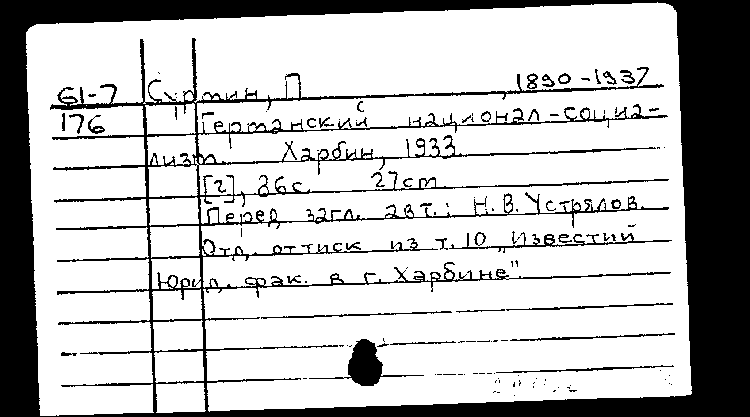 61-7 Сурмин, П , 1890-1937
176 "Германский национал-социа-
лизм. Харбин, 1933
[2], 36с. 27см
Перед загл. авт.: Н.В. Устрялов.
Отд. оттиск из т. 10 „Известий
Юрид. фак. в г. Харбине".